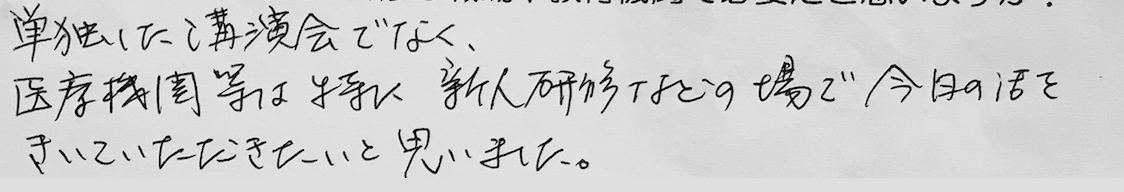 単独した講演会でなく、
医療機関等は特に新人研修などの場で今日の話を
きいていただきたいと思いました。